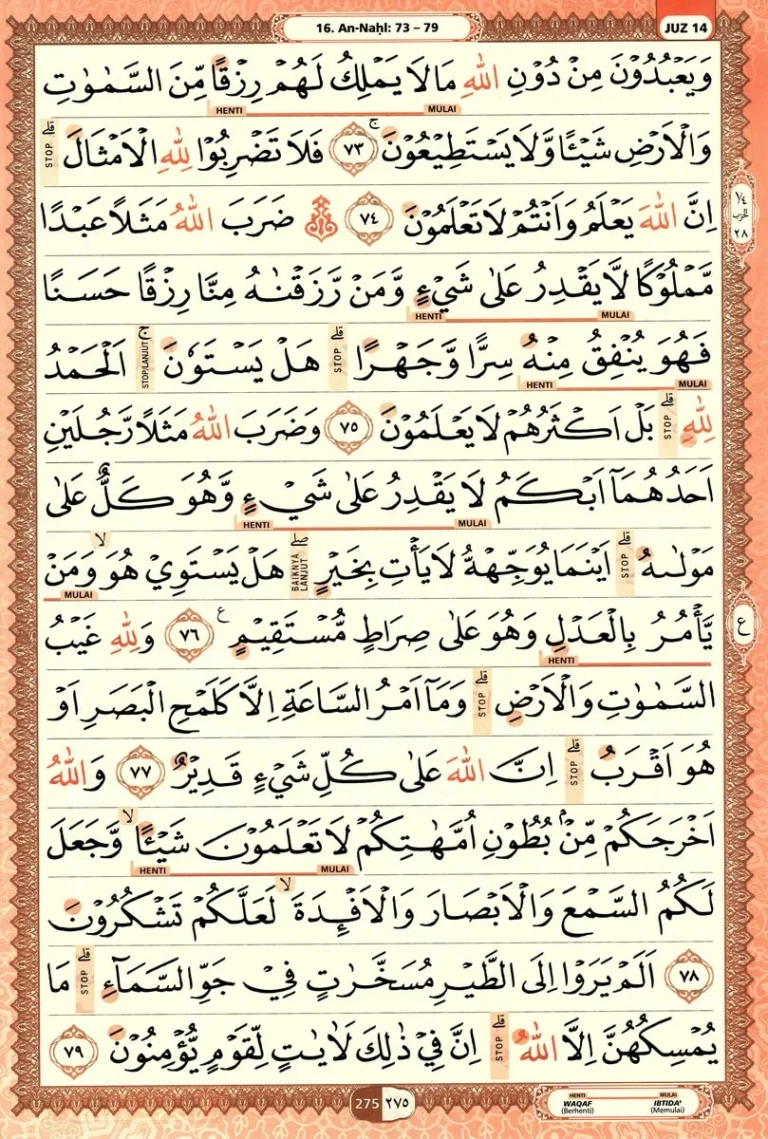 16. An-Naḥl: 73 – 79
JUZ 14
وَيَعْبُدُوْنَ مِنْ دُوْنِ اللّٰهِ مَا لَا يَمْلِكُ لَهُمْ رِزْقًا مِّنَ السَّمٰوٰتِ
HENTI MULAI
وَالْاَرْضِ شَيْـًٔا وَّلَا يَسْتَطِيْعُوْنَ ۚ ٧٣ فَلَا تَضْرِبُوْا لِلّٰهِ الْاَمْثَالَ ۗ STOP
اِنَّ اللّٰهَ يَعْلَمُ وَاَنْتُمْ لَا تَعْلَمُوْنَ ٧٤ ۞ ضَرَبَ اللّٰهُ مَثَلًا عَبْدًا
١/٤ الحزب ٢٨
مَّمْلُوْكًا لَّا يَقْدِرُ عَلٰى شَيْءٍ وَّمَنْ رَّزَقْنٰهُ مِنَّا رِزْقًا حَسَنًا
HENTI MULAI
فَهُوَ يُنْفِقُ مِنْهُ سِرًّا وَّجَهْرًا ۗ STOP هَلْ يَسْتَوٗنَ ۚ STOP/LANJUT اَلْحَمْدُ
HENTI MULAI
لِلّٰهِ ۗ STOP بَلْ اَكْثَرُهُمْ لَا يَعْلَمُوْنَ ٧٥ وَضَرَبَ اللّٰهُ مَثَلًا رَّجُلَيْنِ
اَحَدُهُمَآ اَبْكَمُ لَا يَقْدِرُ عَلٰى شَيْءٍ وَّهُوَ كَلٌّ عَلٰى
HENTI MULAI
مَوْلٰىهُ ۗ STOP اَيْنَمَا يُوَجِّهْهُّ لَا يَأْتِ بِخَيْرٍ ۖ BAIKNYA LANJUT هَلْ يَسْتَوِيْ هُوَ ۙ وَمَنْ
MULAI
يَّأْمُرُ بِالْعَدْلِ وَهُوَ عَلٰى صِرَاطٍ مُّسْتَقِيْمٍ ࣖ ٧٦ وَلِلّٰهِ غَيْبُ
ع
HENTI
السَّمٰوٰتِ وَالْاَرْضِ ۗ STOP وَمَآ اَمْرُ السَّاعَةِ اِلَّا كَلَمْحِ الْبَصَرِ اَوْ
هُوَ اَقْرَبُ ۗ STOP اِنَّ اللّٰهَ عَلٰى كُلِّ شَيْءٍ قَدِيْرٌ ٧٧ وَاللّٰهُ
اَخْرَجَكُمْ مِّنْۢ بُطُوْنِ اُمَّهٰتِكُمْ لَا تَعْلَمُوْنَ شَيْـًٔا ۙ وَّجَعَلَ
HENTI MULAI
لَكُمُ السَّمْعَ وَالْاَبْصَارَ وَالْاَفْـِٕدَةَ ۙ لَعَلَّكُمْ تَشْكُرُوْنَ
٧٨ اَلَمْ يَرَوْا اِلَى الطَّيْرِ مُسَخَّرٰتٍ فِيْ جَوِّ السَّمَاۤءِ ۗ STOP مَا
يُمْسِكُهُنَّ اِلَّا اللّٰهُ ۗ STOP اِنَّ فِيْ ذٰلِكَ لَاٰيٰتٍ لِّقَوْمٍ يُّؤْمِنُوْنَ ٧٩
275 ٢٧٥
HENTI MULAI
WAQAF IBTIDA'
(Berhenti) (Memulai)